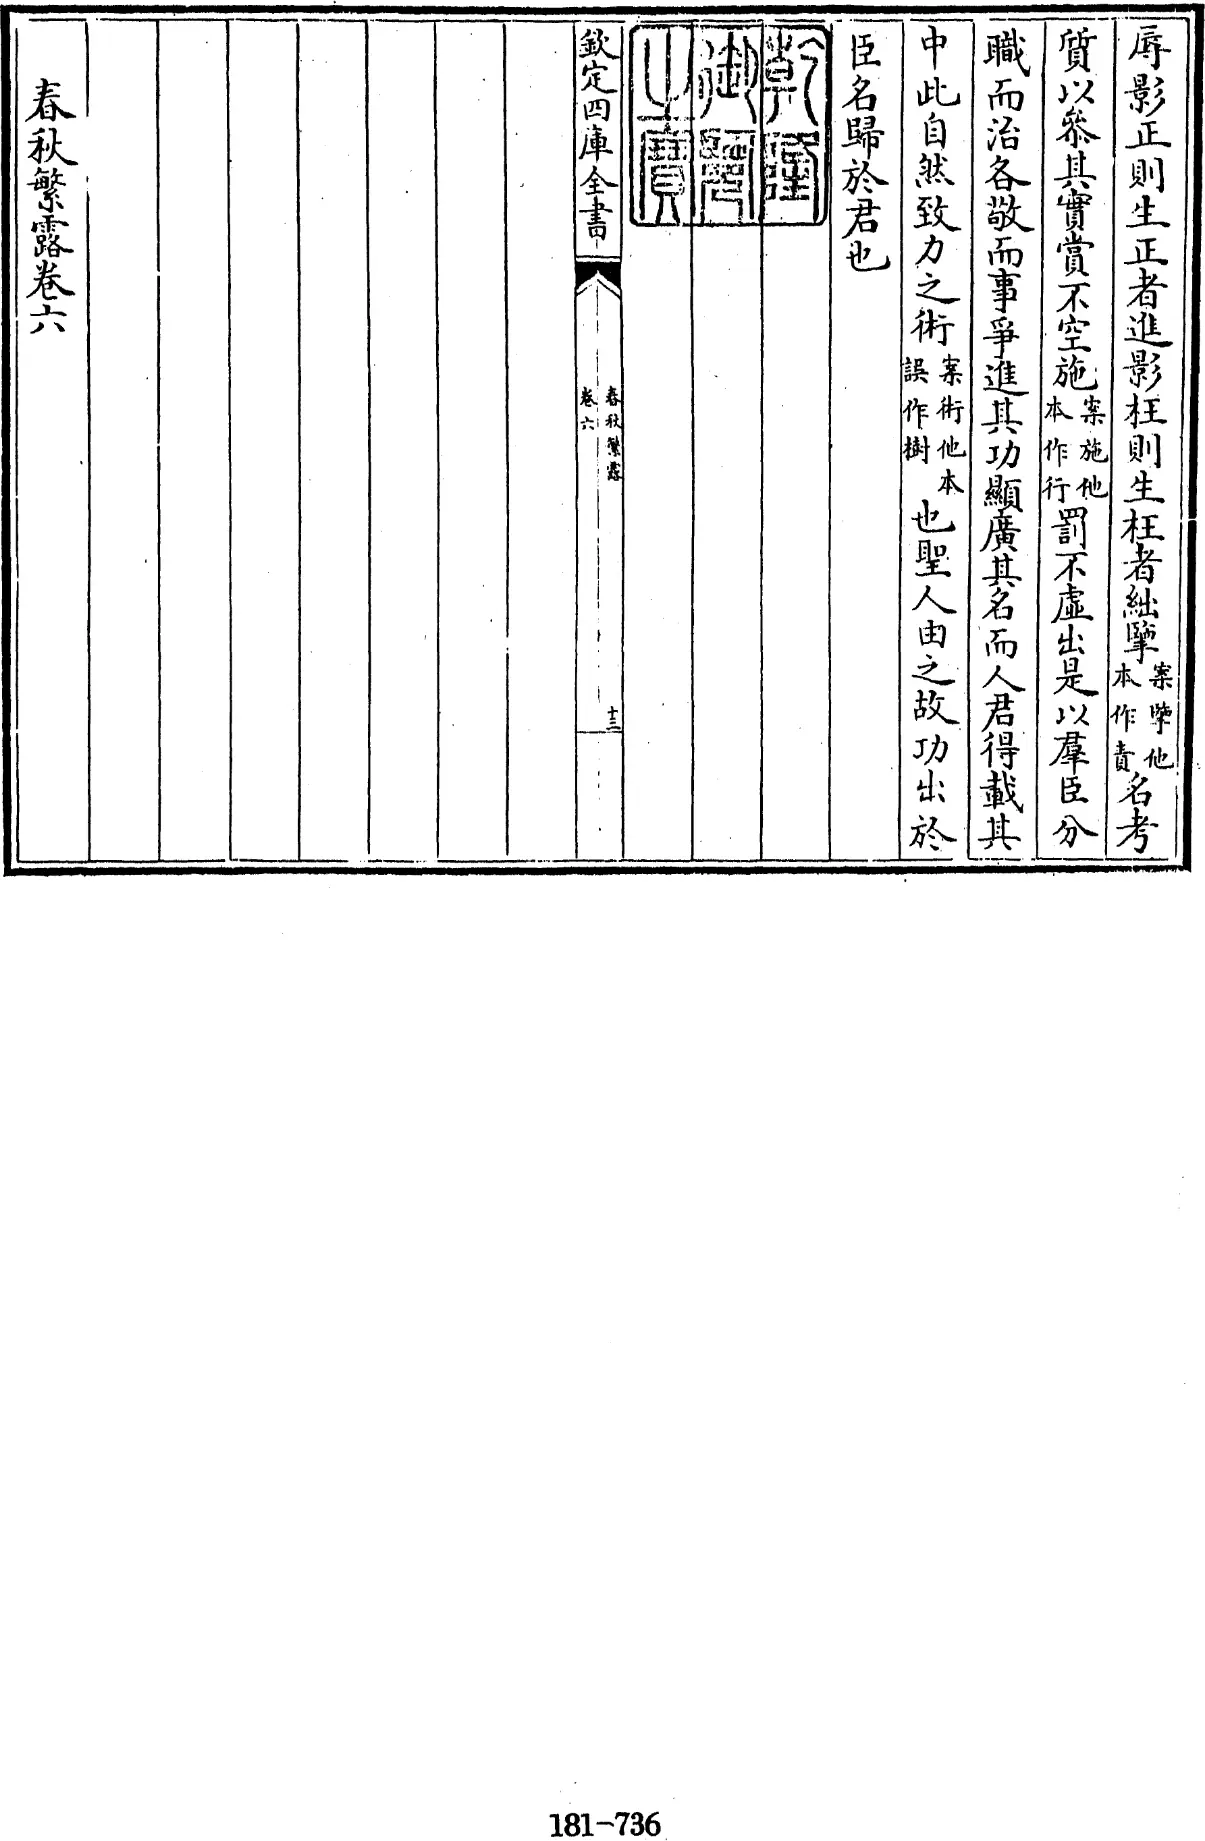 辱影正則生正者進影枉則生枉者絀擥案擥他本作責名考
質以參其實賞不空施案施他本作行罰不虛出是以羣臣分
職而治各敬而事爭進其功顯廣其名而人君得載其
中此自然致力之術案術他本誤作樹也聖人由之故功出於
臣名歸於君也
乾隆御覽之寶
欽定四庫全書
春秋繁露
卷六
十三
春秋繁露卷六
181-736